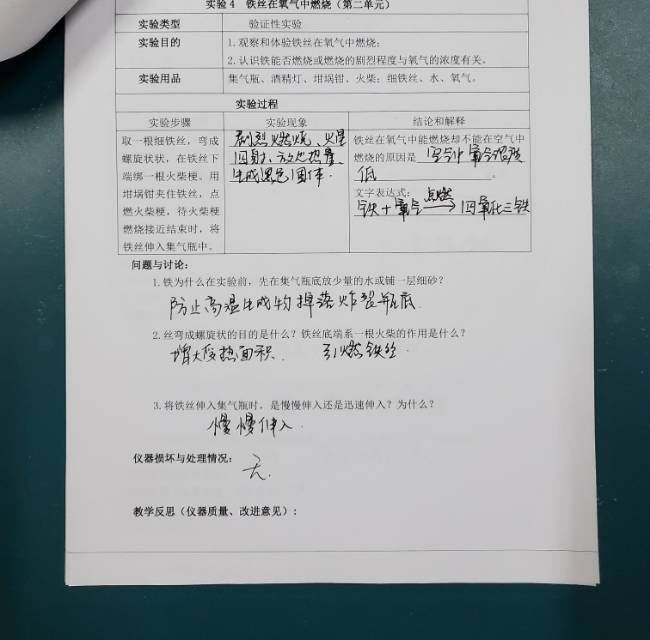 实验 4 铁丝在氧气中燃烧（第二单元）
实验类型 验证性实验
实验目的 1.观察和体验铁丝在氧气中燃烧；
2.认识铁能否燃烧或燃烧的剧烈程度与氧气的浓度有关。
实验用品 集气瓶、酒精灯、坩埚钳、火柴；细铁丝、水、氧气。
实验过程
实验步骤 实验现象 结论和解释
取一根细铁丝，弯成
螺旋状状，在铁丝下
端绑一根火柴梗。用
坩埚钳夹住铁丝，点
燃火柴梗，待火柴梗
燃烧接近结束时，将
铁丝伸入集气瓶中。
剧烈燃烧、火星
四射、放出热量、
生成黑色固体.
铁丝在氧气中能燃烧却不能在空气中
燃烧的原因是 空气中氧气浓度
低。
文字表达式：
铁+氧气 点燃→ 四氧化三铁
问题与讨论：
1.铁为什么在实验前，先在集气瓶底放少量的水或铺一层细砂？
防止高温生成物掉落炸裂瓶底.
2.丝弯成螺旋状的目的是什么？铁丝底端系一根火柴的作用是什么？
增大受热面积. 引燃铁丝.
3.将铁丝伸入集气瓶时，是慢慢伸入还是迅速伸入？为什么？
慢慢伸入.
仪器损坏与处理情况：
无.
教学反思（仪器质量、改进意见）：